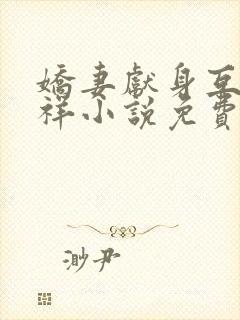 嬌妻獻身互
祥小說免費
渺尹